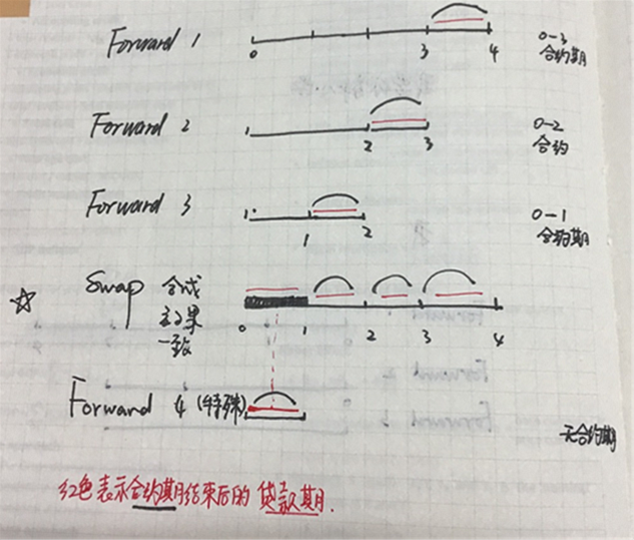 Forward 1
0 3 4
0-3
合约期
Forward 2
1 2 3
0-2
合约
Forward 3
1 1 2
0-1
合约期
☆ Swap 合成
效果
一致
0 1 2 3 4
Forward 4 (特殊)
无合约期
红色表示合约期结束后的贷款期.